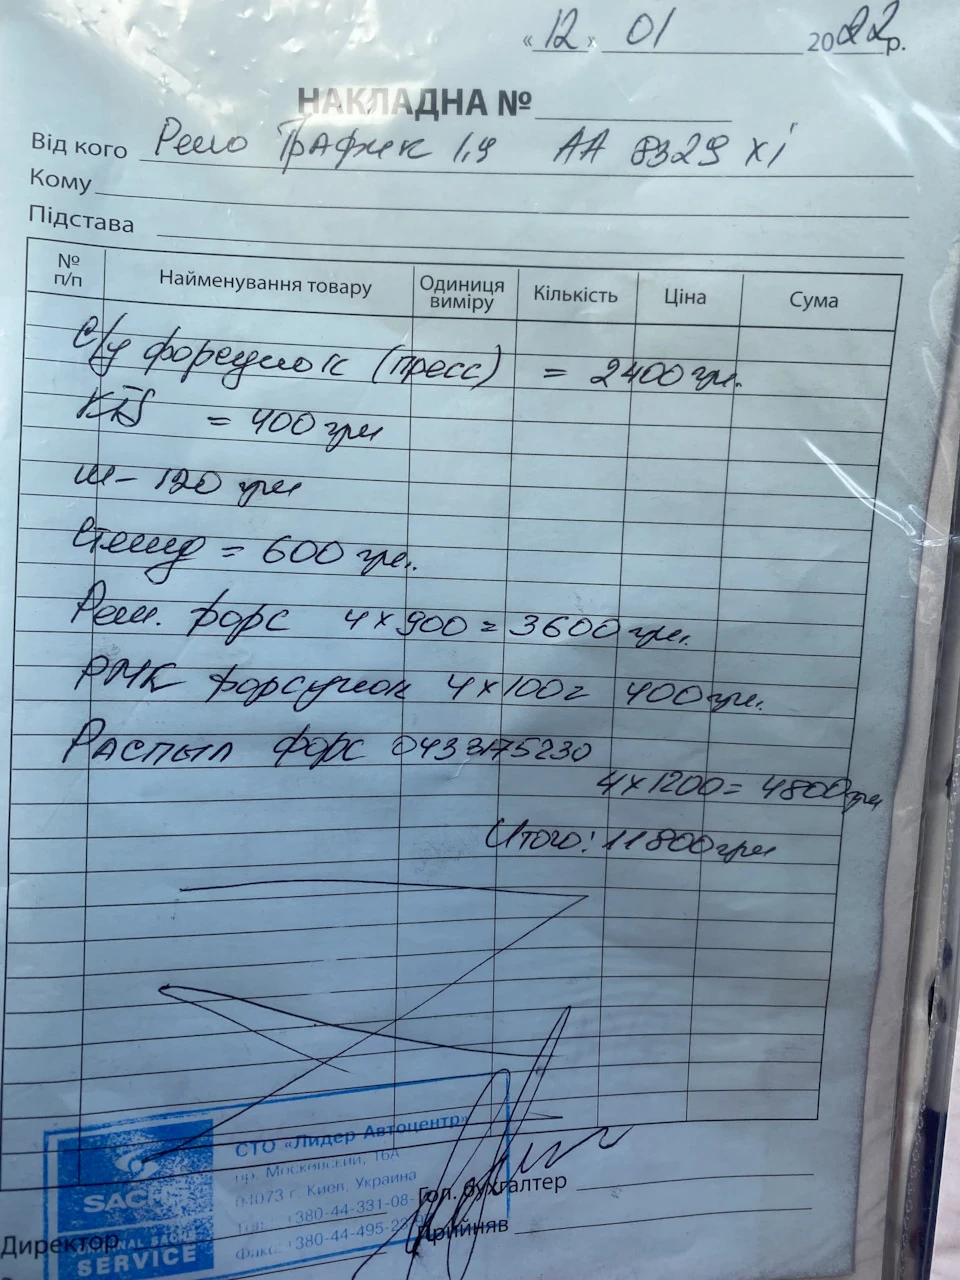 «12» 01 2022р.
НАКЛАДНА №
Від кого Рено Трафик 1,9 АА 8329 ХІ
Кому
Підстава
№ п/п Найменування товару Одиниця виміру Кількість Ціна Сума
с/у форсунок (пресс) = 2400 грн.
KTS = 400 грн
ш - 120 грн
Стенд = 600 грн.
Рем. форс 4х900 = 3600 грн.
РМК форсунок 4х100 = 400 грн.
Распыл форс 0433175230
4х1200 = 4800 грн
Итого: 11800 грн
СТО «Лидер Автоцентр»
пр. Московский, 16А
04073 г. Киев, Украина
+380-44-331-08-
Факс: +380-44-495-2
SACHS
SERVICE
Гол. бухгалтер
Директор
Прийняв